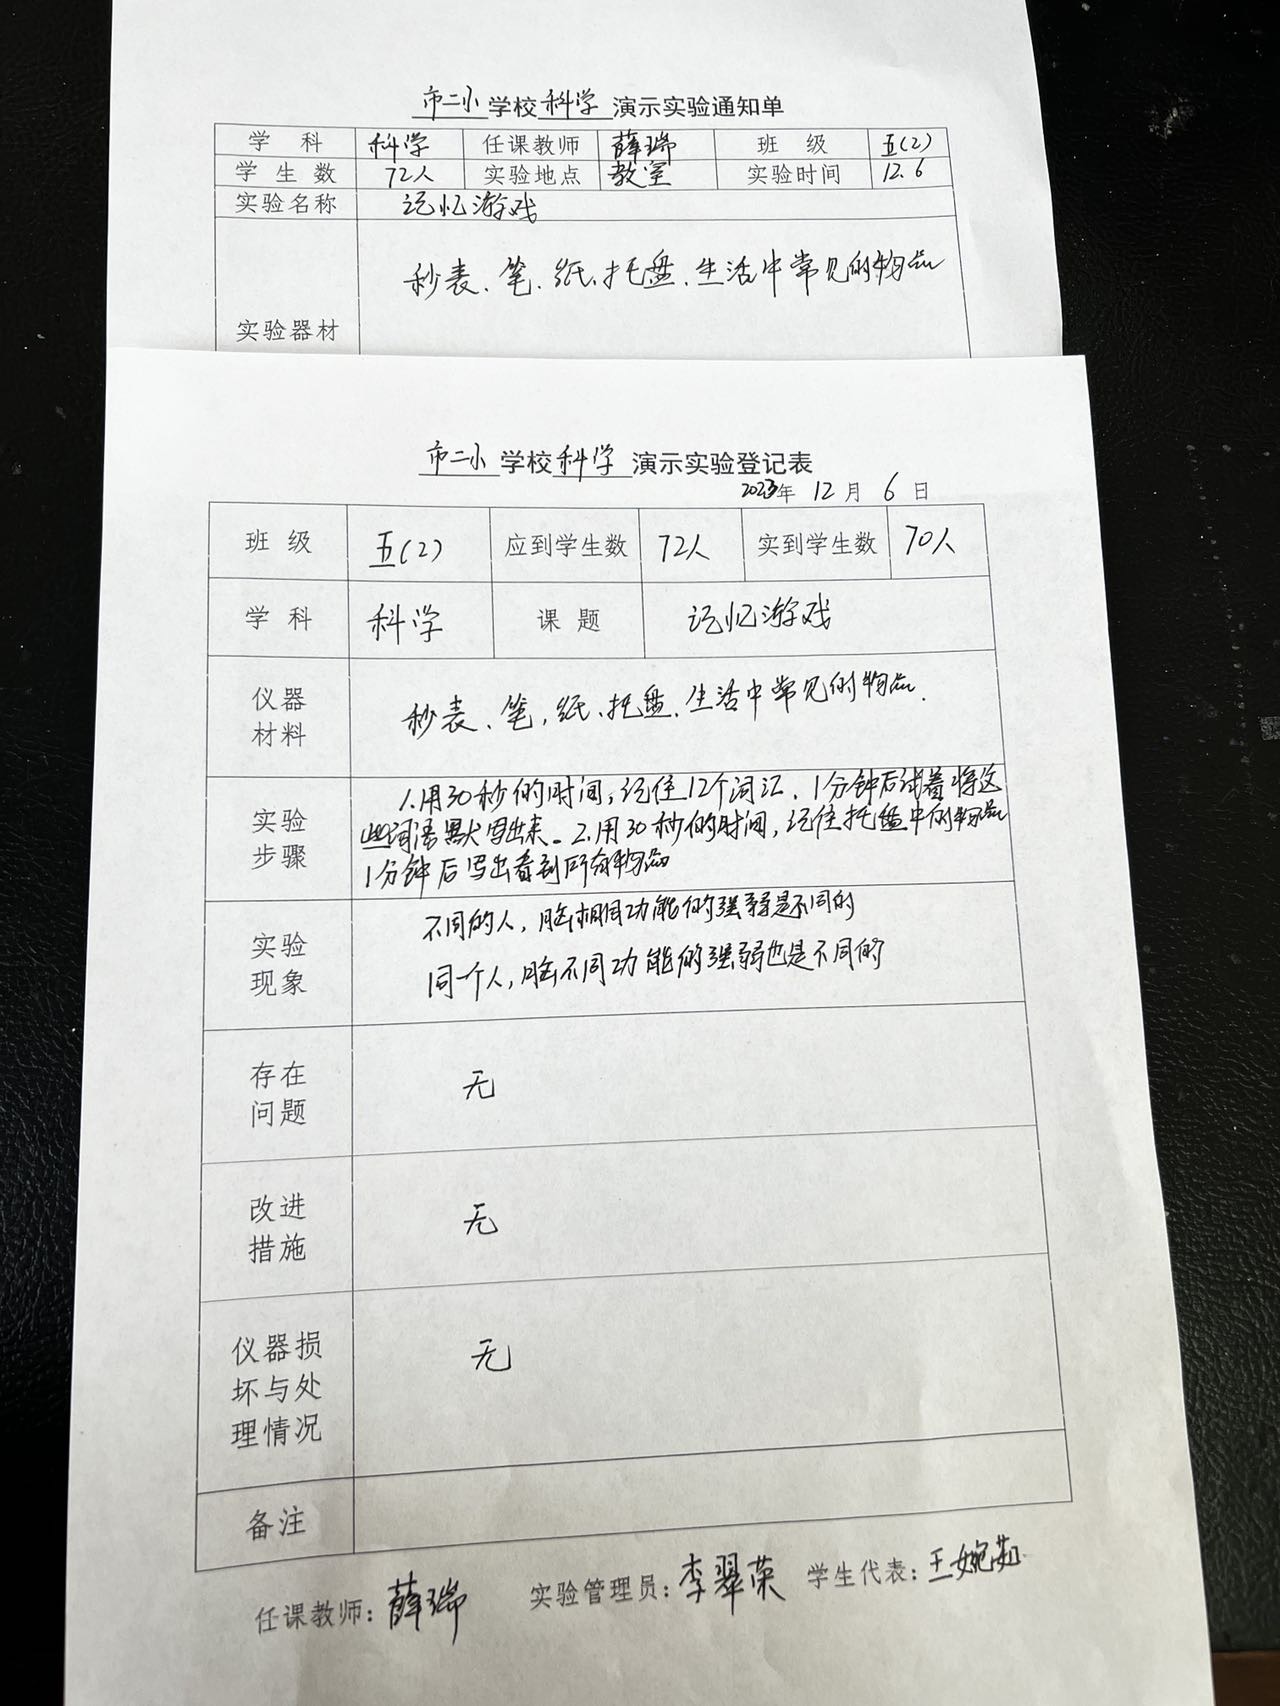 市二小学校科学演示实验通知单
学 科 科学 任课教师 薛瑞 班 级 五(2)
学 生 数 72人 实验地点 教室 实验时间 12.6
实验名称 记忆游戏
秒表、笔、纸、托盘、生活中常见的物品
实验器材
市二小学校科学演示实验登记表
2023年 12月 6日
班 级 五(2) 应到学生数 72人 实到学生数 70人
学 科 科学 课 题 记忆游戏
仪器
材料
秒表、笔、纸、托盘、生活中常见的物品.
实验
步骤
1.用30秒的时间,记住12个词汇、1分钟后试着将这
些词语默写出来。2.用30秒的时间,记住托盘中的物品
1分钟后写出看到所有物品
实验
现象
不同的人,脑相同功能的强弱是不同的
同一个人,脑不同功能的强弱也是不同的
存在
问题
无
改进
措施
无
仪器损
坏与处
理情况
无
备注
任课教师:薛瑞 实验管理员:李翠荣 学生代表:王婉茹